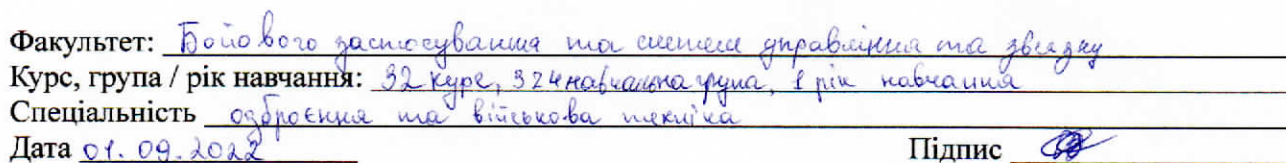 Факультет: Бойового застосування та систем управління та звязку
Курс, група / рік навчання: 32 курс, 324 навчальна група, 1 рік навчання
Спеціальність озброєння та військова техніка
Дата 01.09.2022 Підпис